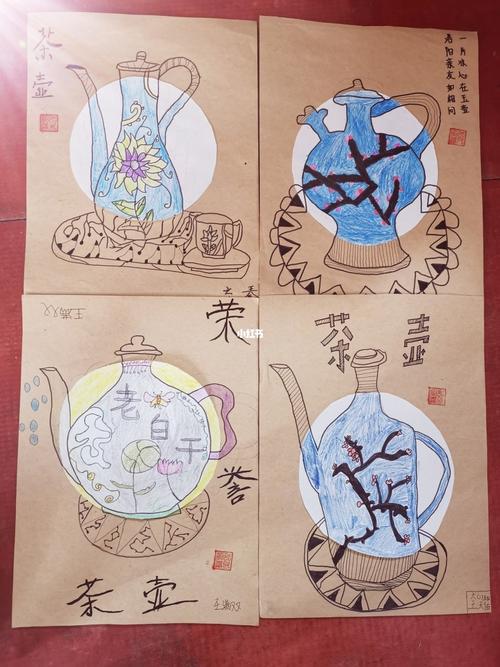 茶
壶
一片冰心在玉壶
洛阳亲友如相问
小红书
荣
誉
老白干
茶壶
茶壶